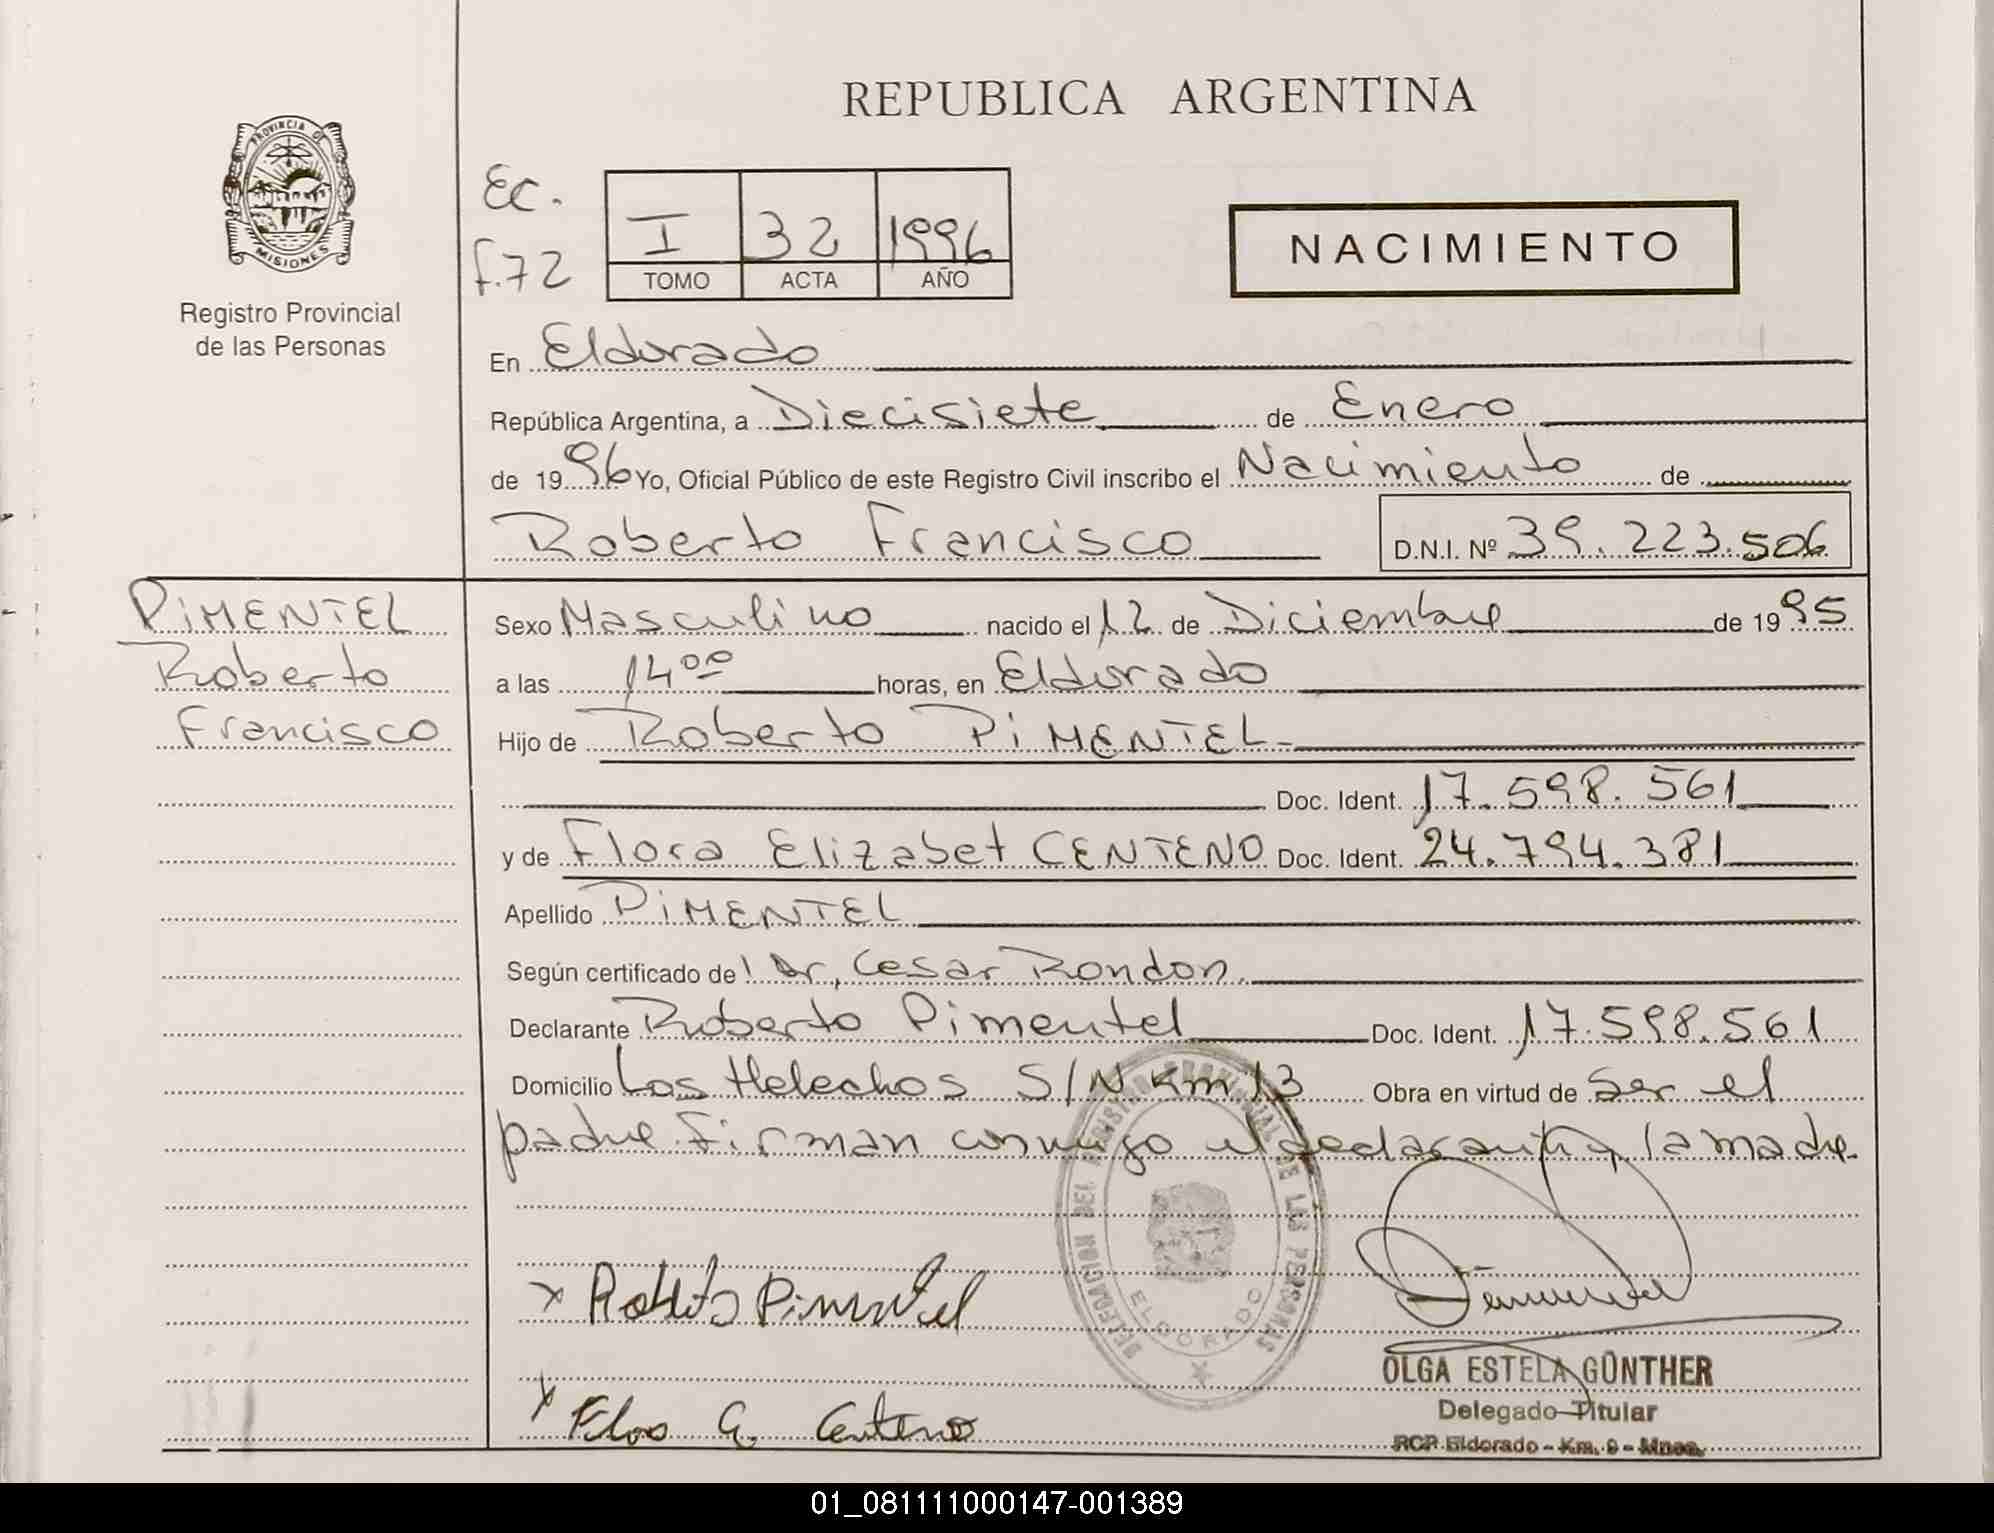 REPUBLICA ARGENTINA
PROVINCIA DE MISIONES
Registro Provincial
de las Personas
Ec.
f.72
I 32 1996
TOMO ACTA AÑO
NACIMIENTO
En Eldorado
República Argentina, a Diecisiete de Enero
de 1996 Yo, Oficial Público de este Registro Civil inscribo el Nacimiento de
Roberto Francisco D.N.I. Nº 39.223.506
PIMENTEL
Roberto
Francisco
Sexo Masculino nacido el 12 de Diciembre de 1995
a las 14⁰⁰ horas, en Eldorado
Hijo de Roberto PIMENTEL
Doc. Ident. 17.598.561
y de Flora Elizabet CENTENO Doc. Ident. 24.794.381
Apellido PIMENTEL
Según certificado de Dr, Cesar Rondon.
Declarante Roberto Pimentel Doc. Ident. 17.598.561
Domicilio Los Helechos S/N Km 13 Obra en virtud de Ser el
padre. Firman conmigo el declarante y la madre.
DELEGACION DEL REGISTRO PROVINCIAL DE LAS PERSONAS
ELDORADO
x Roberto Pimentel
OLGA ESTELA GÜNTHER
Delegado Titular
RCP Eldorado - Km. 9 - Mnes.
x Flora E. Centeno
01_081111000147-001389